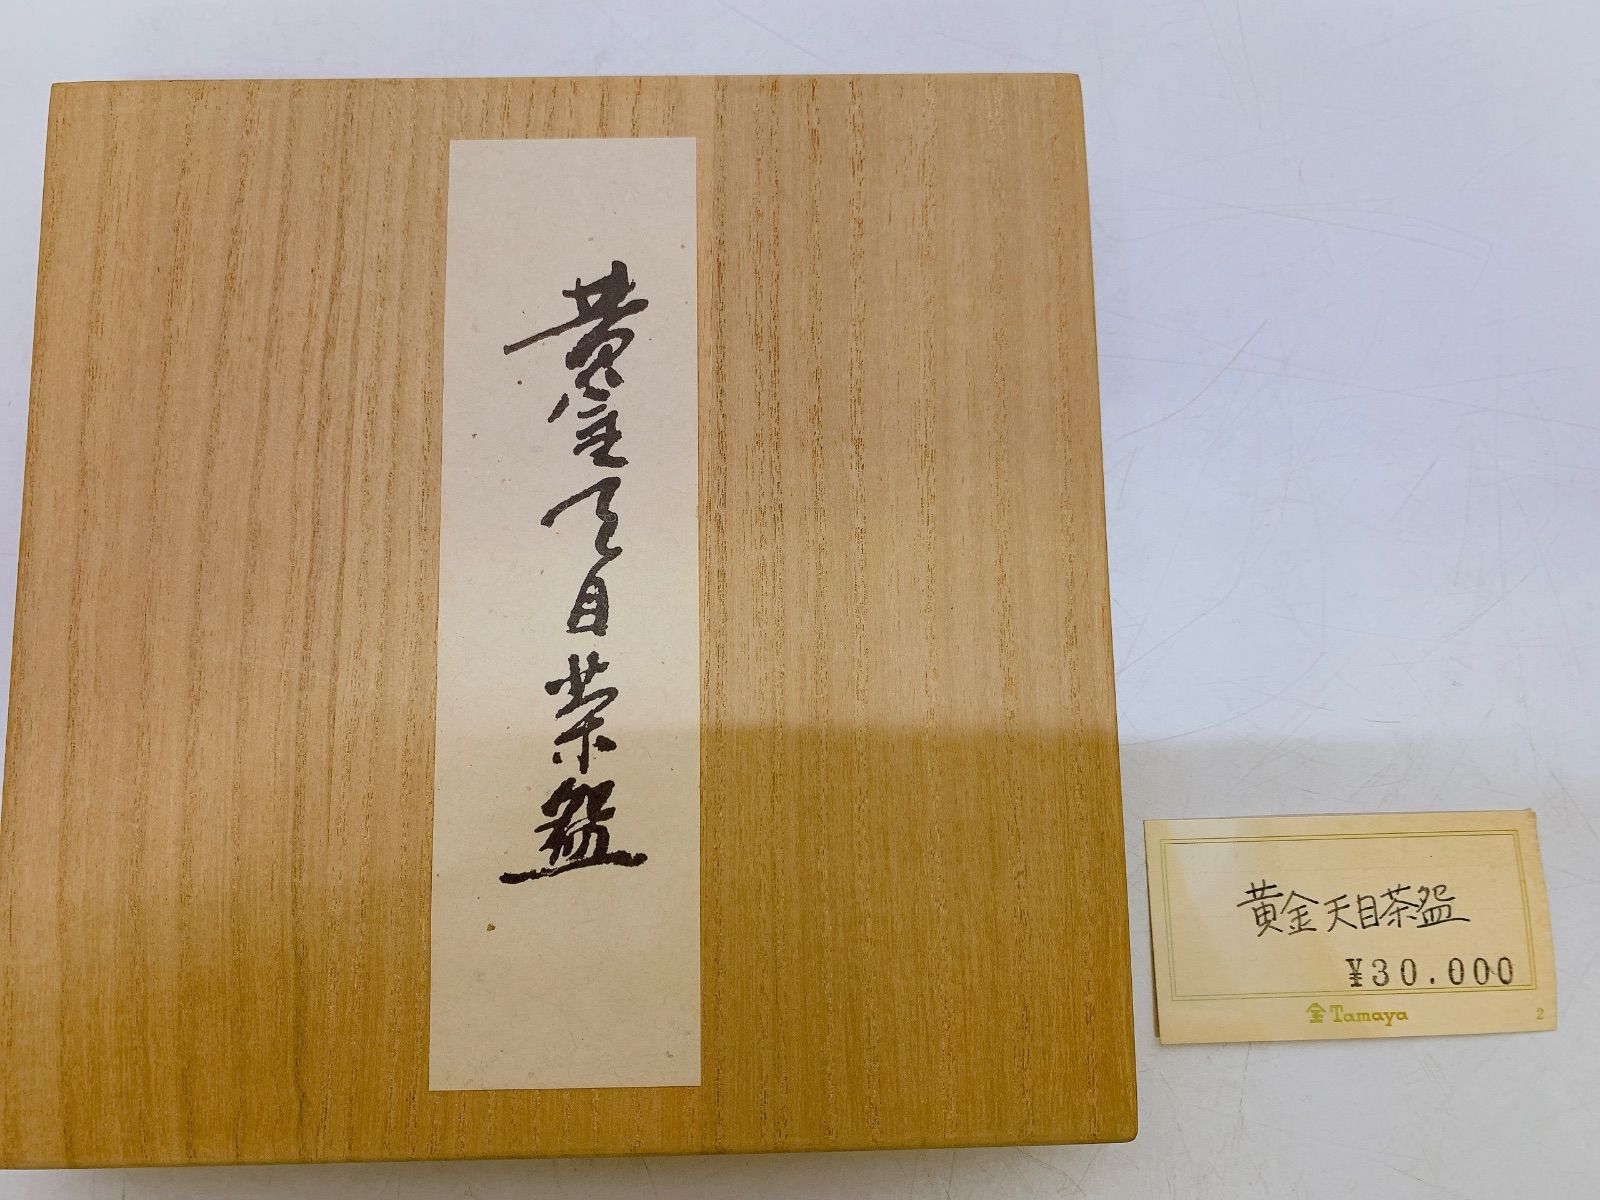 黄金天目茶盌
黄金天目茶盌
¥30.000
Tamaya
2